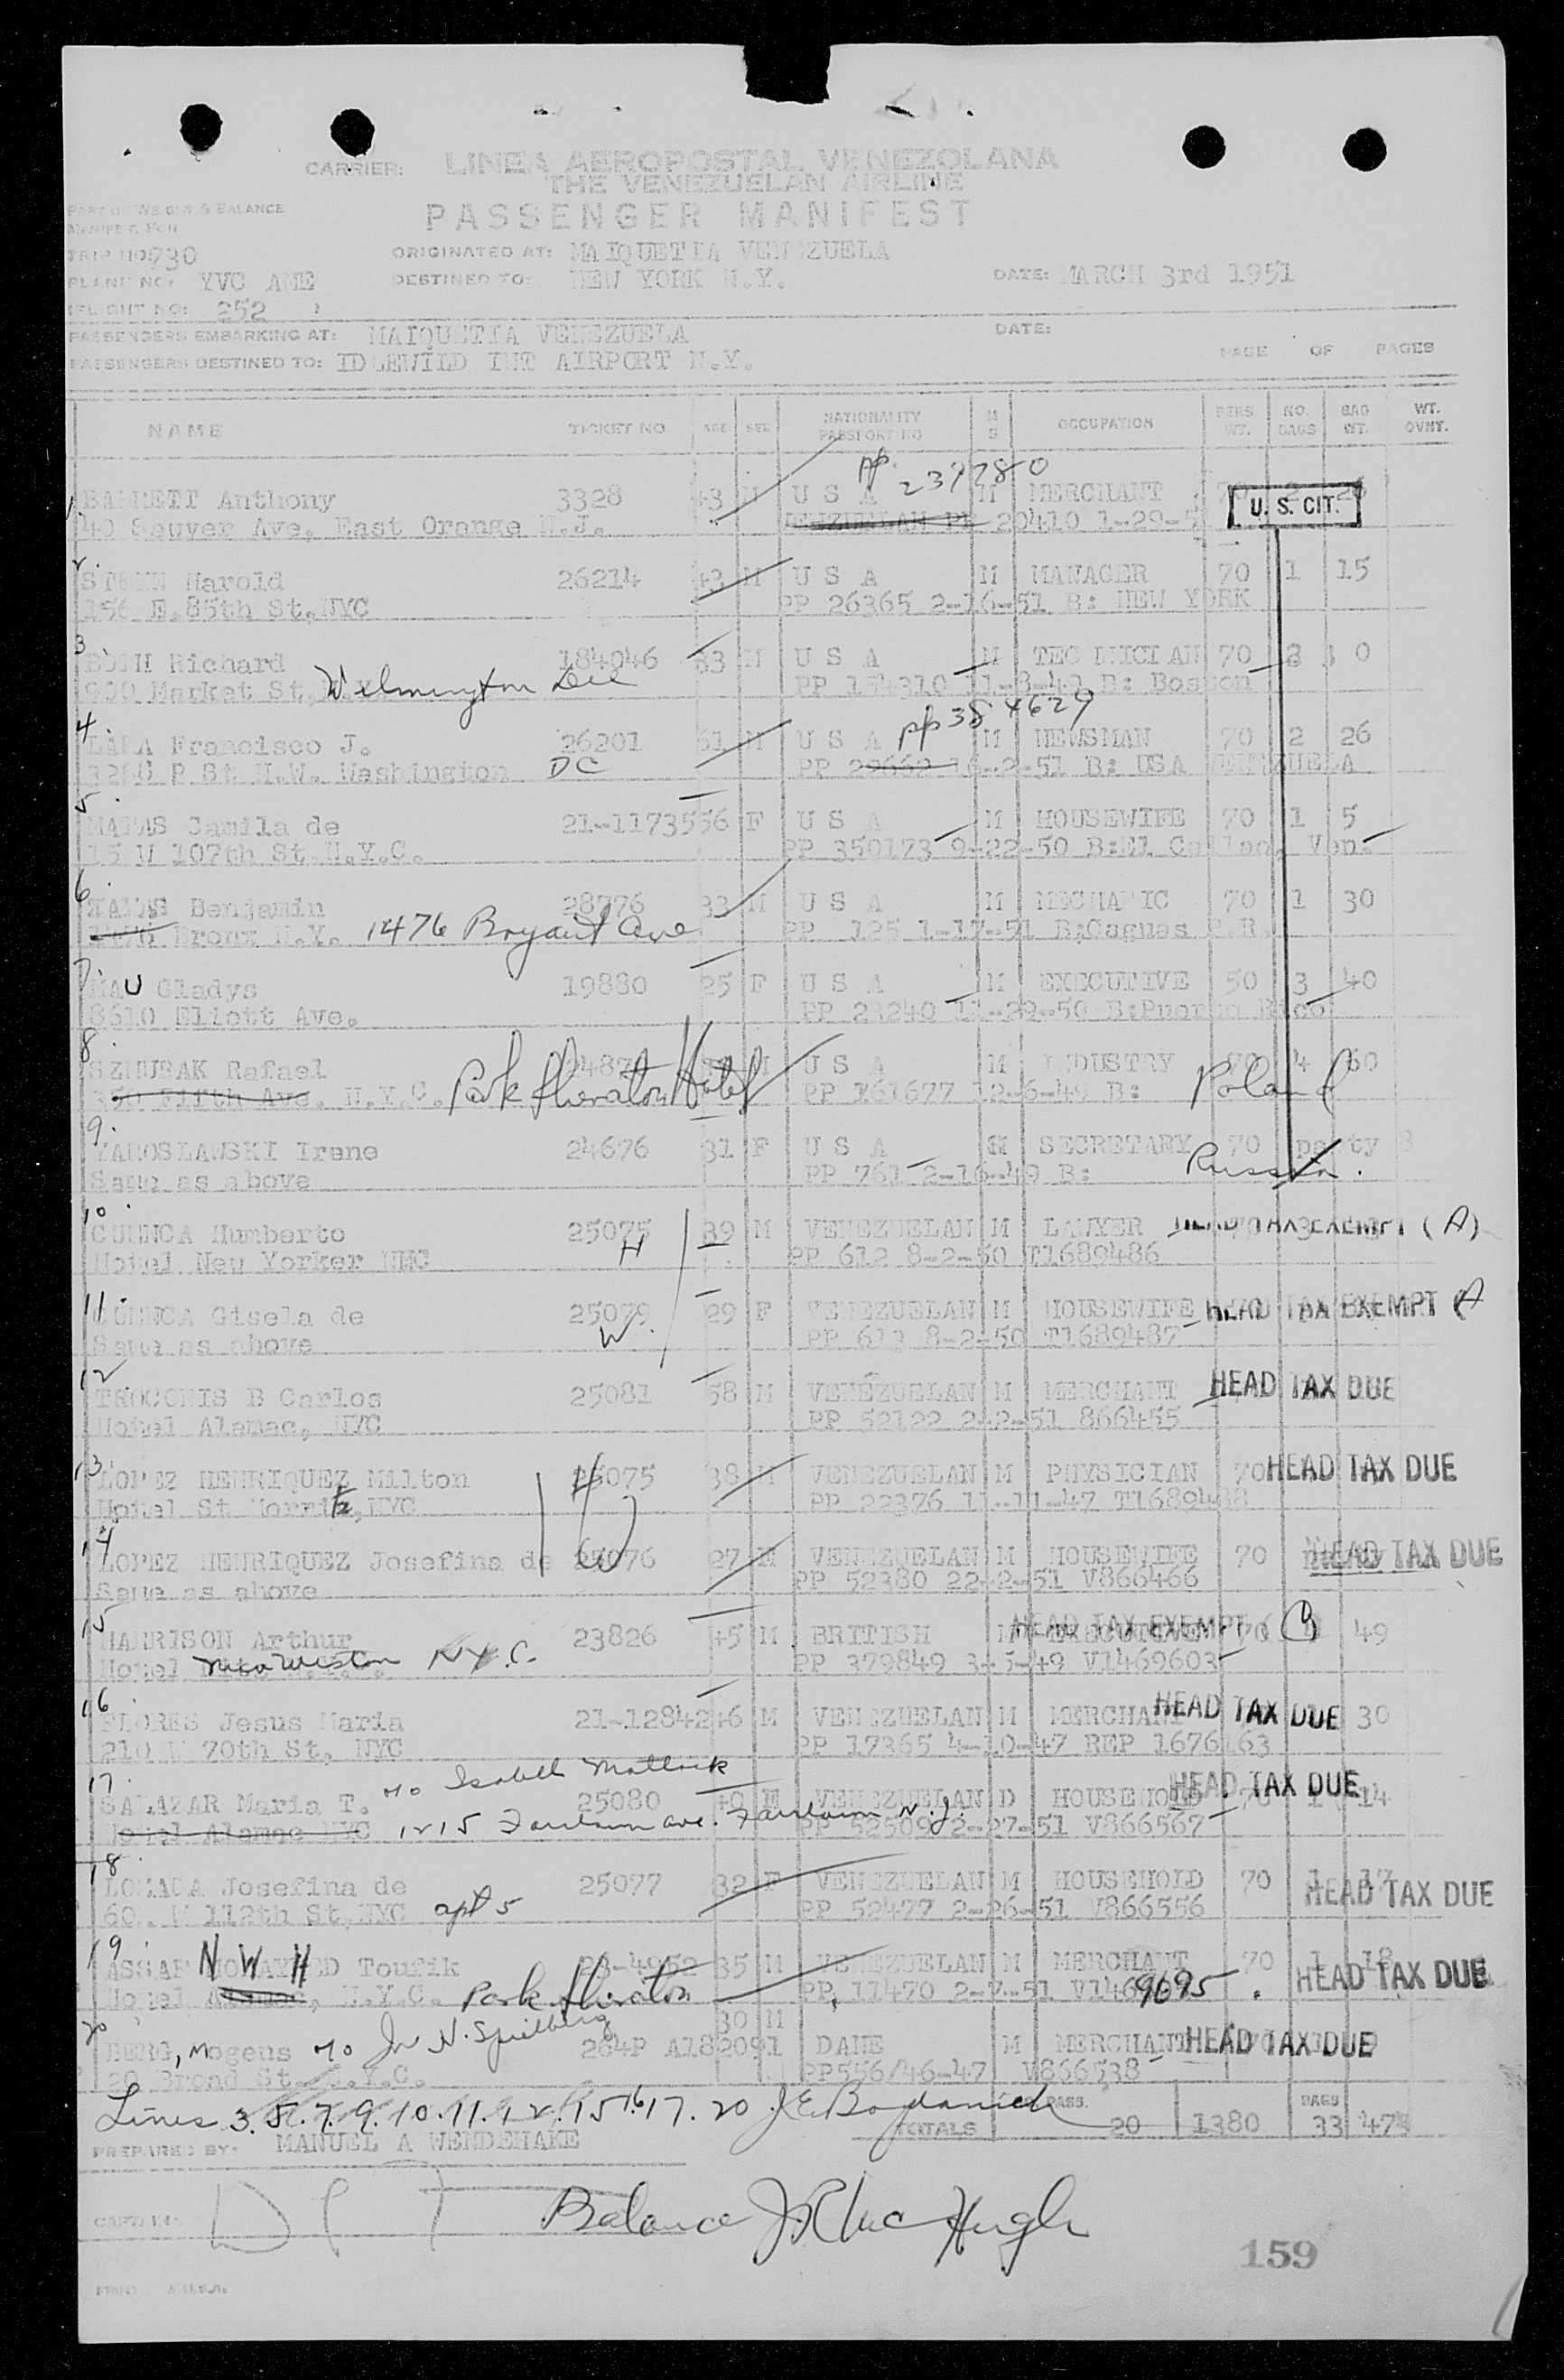 CARRIER: LINEA AEROPOSTAL VENEZOLANA
THE VENEZUELAN AIRLINE
PASSENGER MANIFEST
PART OF WEIGHT & BALANCE
MANIFEST FOR
TRIP NO: 730 ORIGINATED AT: MAIQUETIA VENEZUELA
PLANE NO: YVC AME DESTINED TO: NEW YORK N.Y. DATE: MARCH 3rd 1951
FLIGHT NO: 252
PASSENGERS EMBARKING AT: MAIQUETIA VENEZUELA DATE:
PASSENGERS DESTINED TO: IDLEWILD INT AIRPORT N.Y. PAGE OF PAGES
NAME TICKET NO. AGE SEX NATIONALITY PASSPORT NO M S OCCUPATION PERS WT. NO. BAGS BAG WT. WT. OVHT.
PP 239780
1. BARRETT Anthony 3328 43 M U S A M MERCHANT U. S. CIT.
40 Sauver Ave, East Orange N.J. 20410 1-29-5
2. Harold 26214 43 M U S A M MANAGER 70 1 15
156 E.85th St,NYC PP 26365 2-16-51 B: NEW YORK
3. Richard 184046 33 M U S A M TECHNICIAN 70 0
900 Market St, Wilmington Del PP 154310 B: Boston
4. LARA Francisco J. 26201 51 M U S A PP 384629 M NEWSMAN 70 2 26
P St N.W. Washington DC PP 29662 16-2-51 B: USA VENEZUELA
5. Camila de 21-11735 56 F U S A M HOUSEWIFE 70 1 5
15 W 107th St.N.Y.C. PP 350173 9-22-50 B:El Callao, Ven.
6. Benjamin 28776 33 M U S A M MECHANIC 70 1 30
Bronx N.Y. 1476 Bryant Ave PP 125 1-17-51 B;Caguas P.R.
7. Gladys 19880 25 F U S A M EXECUTIVE 50 3 40
8610 Eliott Ave. PP 23240 11-29-50 B:Puerto Rico
8. SZMURAK Rafael M U S A M INDUSTRY 70 4 60
350 Fifth Ave. N.Y.C. Park Sheraton Hotel PP 161677 12-6-49 B: Poland
9. YAROSLAWSKI Irene 24676 31 F U S A M SECRETARY 70 party 8
Same as above PP 761 2-16-49 B: Russia.
10. CUENCA Humberto 25075 39 M VENEZUELAN M LAWYER HEAD TAX EXEMPT (A)
Hotel New Yorker NYC H PP 612 8-2-50 T1689486
11. CUENCA Gisela de 25079 29 F VENEZUELAN M HOUSEWIFE HEAD TAX EXEMPT (A
Same as above W. PP 613 8-2-50 T1689487
12. TROCONIS B Carlos 25081 58 M VENEZUELAN M MERCHANT HEAD TAX DUE
Hotel Alamac, NYC PP 52122 2-2-51 866455
13. LOPEZ HENRIQUEZ Milton 25075 38 M VENEZUELAN M PHYSICIAN 70 HEAD TAX DUE
Hotel St Morritz,NYC H PP 22376 11-11-47 T1689488
14 LOPEZ HENRIQUEZ Josefina de 25076 27 F VENEZUELAN M HOUSEWIFE 70 HEAD TAX DUE
Same as above W PP 52380 22-2-51 V866466
15 HARRISON Arthur 23826 45 M BRITISH M EXECUTIVE 70 HEAD TAX EXEMPT 49
Hotel N.Y.C. PP 379849 3-5-49 V1469603
16. FLORES Jesus Maria 21-12842 46 M VENEZUELAN M MERCHANT HEAD TAX DUE 30
210 W 70th St, NYC PP 17365 4-10-47 REP 1676163
c/o Isabell Matlack
17. SALAZAR Maria T. 25080 40 F VENEZUELAN D HOUSEHOLD HEAD TAX DUE 14
Hotel Alamac NYC 1215 Fairlawn ave. Fairlawn N.J. PP 52509 2-27-51 V866567
18. LOZADA Josefina de 25077 32 F VENEZUELAN M HOUSEHOLD 70 1 17 HEAD TAX DUE
W 112th St,NYC apt 5 PP 52477 2-26-51 V866556
19. ASSAF Toufik 23-4952 35 M VENEZUELAN M MERCHANT 70 1 18 HEAD TAX DUE
Hotel Alamac, N.Y.C. Park Sheraton PP. 11470 V1469695.
20 BERG, Mogens c/o N. Spielberg 264P A182091 30 M DANE M MERCHANT HEAD TAX DUE
Broad St. N.Y.C. PP556/46-47 V866538
Lines 3. 5. 7. 9. 10. 11. 12. 15. 16. 17. 20 J.E. Bogdanich PASS. BAGS
TOTALS 20 1380 33
PREPARED BY: MANUEL A WENDEHAKE
CAPTAIN: Balance J.R. McHugh
159